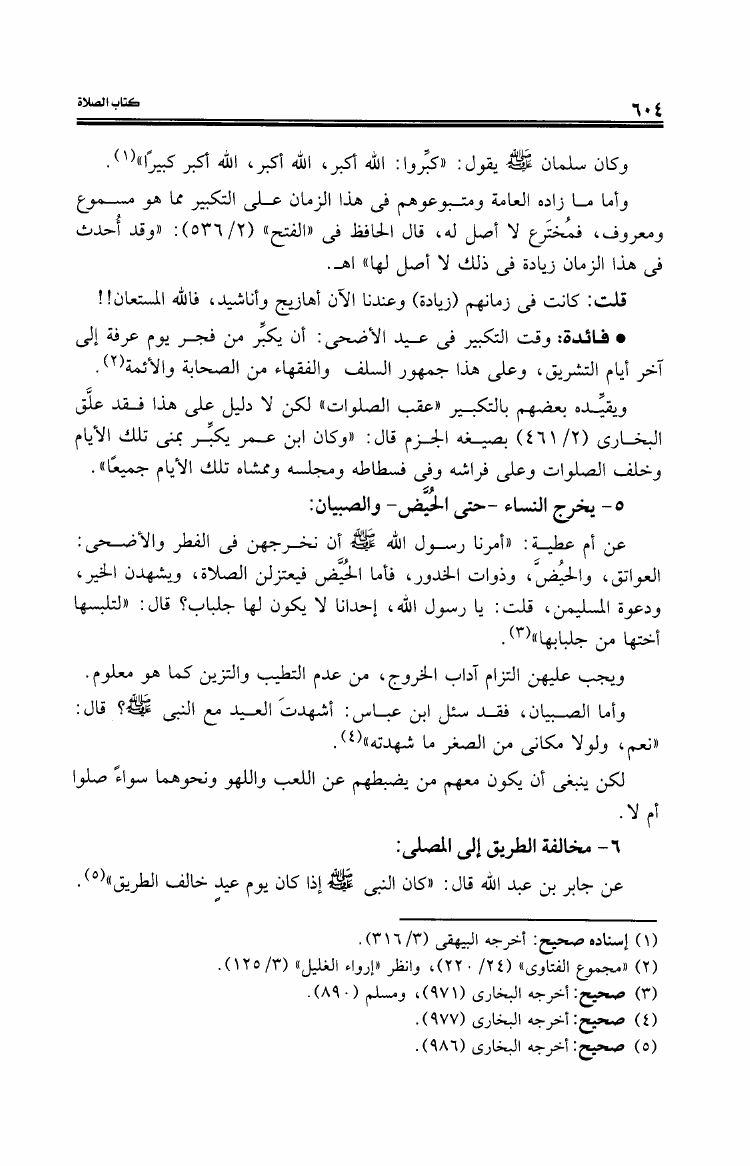 كتاب الصلاة
٦٠٤
وكان سلمان ﷺ يقول: «كبِّروا: الله أكبر، الله أكبر، الله أكبر كبيرًا»(١).
وأما ما زاده العامة ومتبوعوهم فى هذا الزمان على التكبير مما هو مسموع
ومعروف، فمُخترَع لا أصل له، قال الحافظ فى «الفتح» (٥٣٦/٢): «وقد أُحدث
فى هذا الزمان زيادة فى ذلك لا أصل لها» اهـ.
قلت: كانت فى زمانهم (زيادة) وعندنا الآن أهازيج وأناشيد، فالله المستعان!!
• فائدة: وقت التكبير فى عيد الأضحى: أن يكبِّر من فجر يوم عرفة إلى
آخر أيام التشريق، وعلى هذا جمهور السلف والفقهاء من الصحابة والأئمة(٢).
ويقيِّده بعضهم بالتكبير «عقب الصلوات» لكن لا دليل على هذا فقد علَّق
البخارى (٤٦١/٢) بصيغه الجزم قال: «وكان ابن عمر يكبِّر بمنى تلك الأيام
وخلف الصلوات وعلى فراشه وفى فسطاطه ومجلسه وممشاه تلك الأيام جميعًا».
٥- يخرج النساء -حتى الحُيَّض- والصبيان:
عن أم عطية: «أمرنا رسول الله ﷺ أن نخرجهن فى الفطر والأضحى:
العواتق، والحيُضَّ، وذوات الخدور، فأما الحُيَّض فيعتزلن الصلاة، ويشهدن الخير،
ودعوة المسليمن، قلت: يا رسول الله، إحدانا لا يكون لها جلباب؟ قال: «لتلبسها
أختها من جلبابها»(٣).
ويجب عليهن التزام آداب الخروج، من عدم التطيب والتزين كما هو معلوم.
وأما الصبيان، فقد سئل ابن عباس: أشهدتَ العيد مع النبى ﷺ؟ قال:
«نعم، ولولا مكانى من الصغر ما شهدته»(٤).
لكن ينبغى أن يكون معهم من يضبطهم عن اللعب واللهو ونحوهما سواءً صلوا
أم لا.
٦- مخالفة الطريق إلى المصلى:
عن جابر بن عبد الله قال: «كان النبى ﷺ إذا كان يوم عيدٍ خالف الطريق»(٥).
(١) إسناده صحيح: أخرجه البيهقى (٣١٦/٣).
(٢) «مجموع الفتاوى» (٢٢٠/٢٤)، وانظر «إرواء الغليل» (١٢٥/٣).
(٣) صحيح: أخرجه البخارى (٩٧١)، ومسلم (٨٩٠).
(٤) صحيح: أخرجه البخارى (٩٧٧).
(٥) صحيح: أخرجه البخارى (٩٨٦).